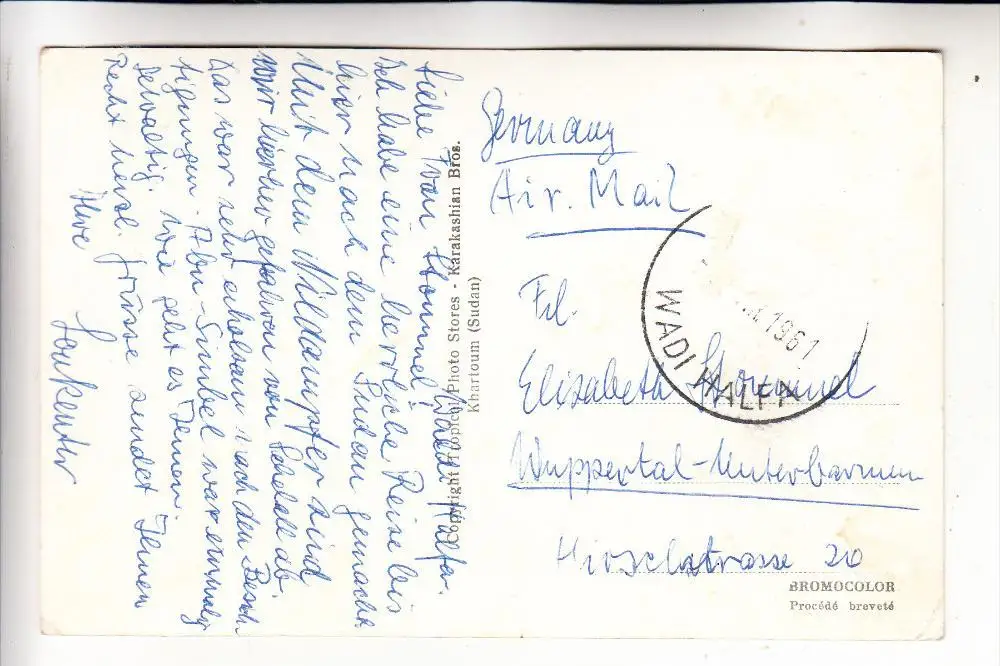 Liebe Frau Stommel, Wadi Halfa.
Ich habe eine herrliche Reise bis
hier nach dem Sudan gemacht
Mit dem Nildampfer sind
wir hierher gefahren von Schellal ab.
Das war sehr erholsam nach den Besich-
tigungen. Abu-Simbel war einmalig
gewaltig. Wie geht es Ihnen.
Recht herzl. Grüsse sendet Ihnen
Ihre
Copyright Tropical Photo Stores - Karakashian Bros.
Khartoum (Sudan)
Germany
Air. Mail
Frl.
Elisabeth Stommel
Wuppertal-Unterbarmen
Hirschstrasse 20
1961
WADI HALFA
BROMOCOLOR
Procédé breveté